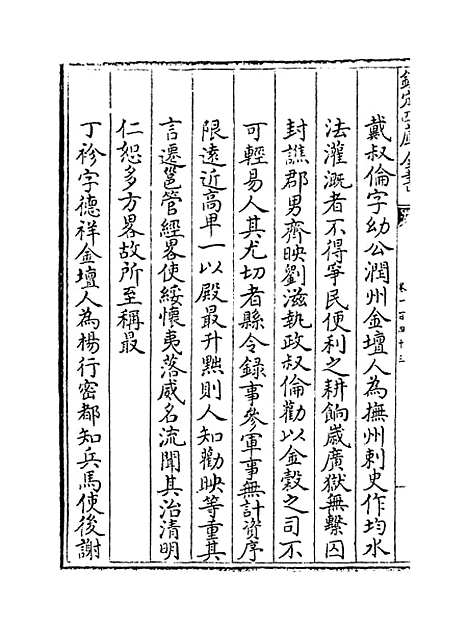 欽定四庫全書
卷一百四十三
戴叔倫字幼公潤州金壇人為撫州刺史作均水
法灌溉者不得爭民便利之耕餉歲廣獄無繫囚
封譙郡男齊映劉滋執政叔倫勸以金穀之司不
可輕易人其尤切者縣令録事參軍事無計資序
限遠近高卑一以殿最升黜則人知勸映等重其
言遷邕管經畧使綏懷夷落威名流聞其治清明
仁恕多方畧故所至稱最
丁衫字德祥金壇人為楊行密都知兵馬使後謝